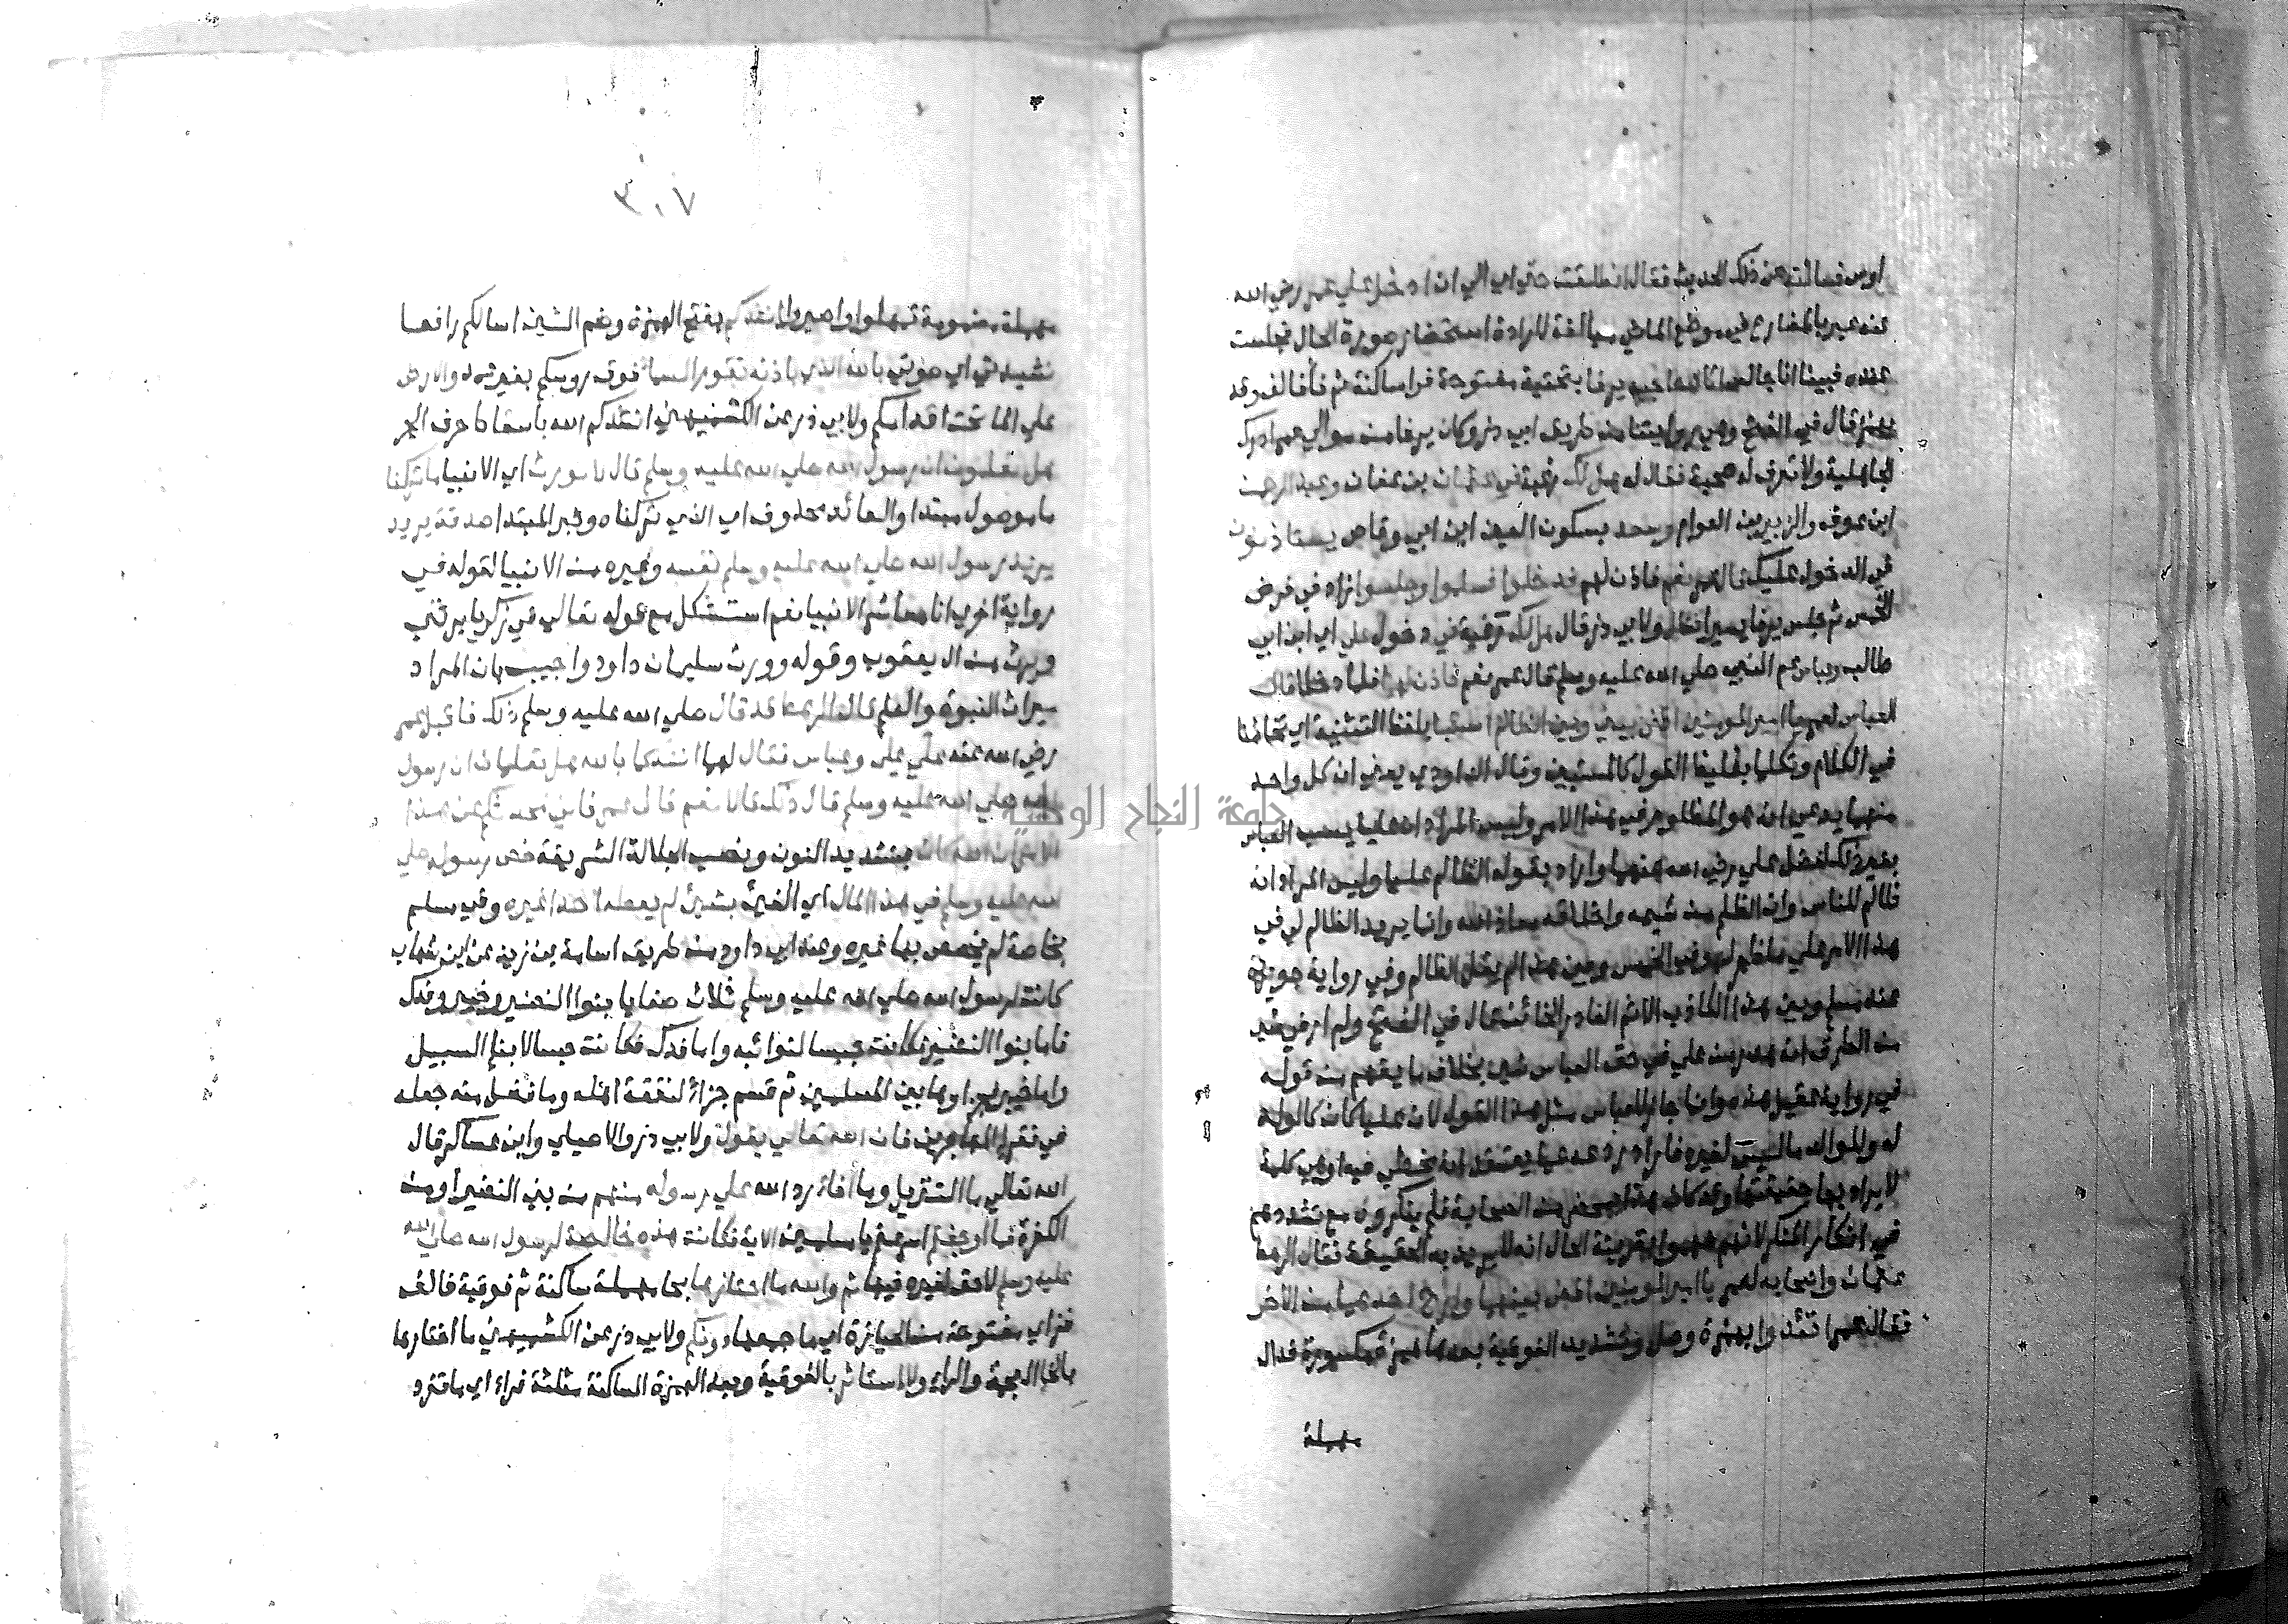 اوس فسالته عن ذلك الحديث فقال انطلقت حتي اي الي ان ادخل علي عمر رضي الله
عنه عبر بالمضارع في موضع الماضي مبالغة لارادة استحضار صورة الحال فجلست
عنده فبينا انا جالس اتاه حاجبه يرفا بتحتية مفتوحة فرا ساكنة ثم فا فالف وقد
يهمز قال في الفتح وهي روايتنا من طريق ابي ذر وكان يرفا من موالي عمر ادرك
الجاهلية ولا تعرف له صحبة فقال له هل لك رغبة في عثمان بن عفان وعبد الرحمن
ابن عوف والزبير بن العوام وسعد بسكون العين ابن ابي وقاص يستاذنون
في الدخول عليك قال عمر نعم فاذن لهم فدخلوا فسلموا وجلسوا زاد في فرض
الخمس ثم جلس يرفا يسيرا فقال ولابي ذر قال هل لك رغبة في دخول علي اي ابن ابي
طالب وعباس عم النبي صلي الله عليه وسلم قال عمر نعم فاذن لهما فلما دخلا قال
العباس لعمر يا امير المومنين اقض بيني وبين الظالم استبا بلفظ التثنية اي تخاشنا
في الكلام وتكلما بغليظ القول كالمستبين وقال الداودي يعني ان كل واحد
منهما يدعي انه هو المظلوم في هذا الامر وليس المراد ان عليا يسب العباس
بغير ذلك لفضل علي رضي الله عنهما واراد بقوله الظالم عليا وليس المراد انه
ظالم للناس وان الظلم من شيمه واخلاقه معاذ الله وانما يريد الظالم لي في
هذا الامر علي ما ظهر له وفي الخمس وبين هذا لم يقل الظالم وفي رواية جويرية
عند مسلم وبين هذا الكاذب الاثم الغادر الخائن قال في الفتح ولم ار في شي
من الطرق انه صدر من علي في حق العباس شي بخلاف ما يفهم من قوله
في رواية عقيل هذه وانما جاز للعباس مثل هذا القول لان عليا كان كالولد
له وللوالد ما ليس لغيره فاراد ردعه عما يعتقد انه مخطي فيه او هي كلمة
لا يراد بها حقيقتها وقد كان هذا بمحضر من الصحابة فلم ينكروه مع تشددهم
في انكار المنكر لانهم فهموا بقرينة الحال انه لا يريد به الحقيقة فقال الرهط
عثمان واصحابه لعمر يا امير المومنين اقض بينهما وارح احدهما من الاخر
فقال عمر اتئدوا بهمزة وصل وتشديد الفوقية بعدها همزة مكسورة فدال
مهملة
٣٠٧
مهملة مضمومة تمهلوا واصبروا انشدكم بفتح الهمزة وضم الشين اسالكم رافعا
نشيدتي اي صوتي بالله الذي باذنه تقوم السما فوق روسكم بغير عمد والارض
علي الما تحت اقدامكم ولابي ذر عن الكشميهني انشدكم الله باسقاط حرف الجر
هل تعلمون ان رسول الله صلي الله عليه وسلم قال لا نورث اي الانبيا ما تركنا
ما موصول مبتدا والعائد محذوف اي الذي تركناه وخبر المبتدا صدقة يريد
يريد رسول الله صلي الله عليه وسلم نفسه وغيره من الانبيا لقوله في
رواية اخري انا معاشر الانبيا نعم استشكل مع قوله تعالي في زكريا يرثني
ويرث من ال يعقوب وقوله وورث سليمان داود واجيب بان المراد
ميراث النبوة والعلم قال الرهط قد قال صلي الله عليه وسلم ذلك فاقبل عمر
رضي الله عنه علي علي وعباس فقال لهما انشدكما بالله هل تعلمان ان رسول
الله صلي الله عليه وسلم قال ذلك قالا نعم قال عمر فاني محدثكم عن هذا
الامر ان الله كان بتشديد النون ونصب الجلالة الشريفة خص رسوله صلي
الله عليه وسلم في هذا المال اي الفيء بشيء لم يعطه احدا غيره وفي مسلم
بخاصة لم يخصص بها غيره وعند ابي داود من طريق اسامة بن زيد عن ابن شهاب
كانت لرسول الله صلي الله عليه وسلم ثلاث صفايا بنوا النضير وخيبر وفدك
فاما بنوا النضير فكانت حبسا لنوائبه واما فدك فكانت حبسا لابناء السبيل
واما خيبر فجزاها بين المسلمين ثم قسم جزأ لنفقة اهله وما فضل منه جعله
في فقراء المهاجرين فان الله تعالي يقول ولابي ذر والاصيلي وابن عساكر قال
الله تعالي ما التنزيل وما افاء رد الله علي رسوله منهم من بني النضير او من
الكفرة فما اوجفتم اسرعتم يا مسلمين الاية فكانت هذه خالصة لرسول الله صلي الله
عليه وسلم لا حق لغيره فيها ثم والله ما احتازها بحا مهملة ساكنة ثم فوقية فالف
فزاي مفتوحة من الحيازة اي ما جمعها دونكم ولابي ذر عن الكشميهني ما اختارها
بالخا المعجمة والراي ولا استاثر بالفوقية وبعد الهمزة الساكنة مثلثة فراء اي ما تفرد
جامعة النجاح الوطنية